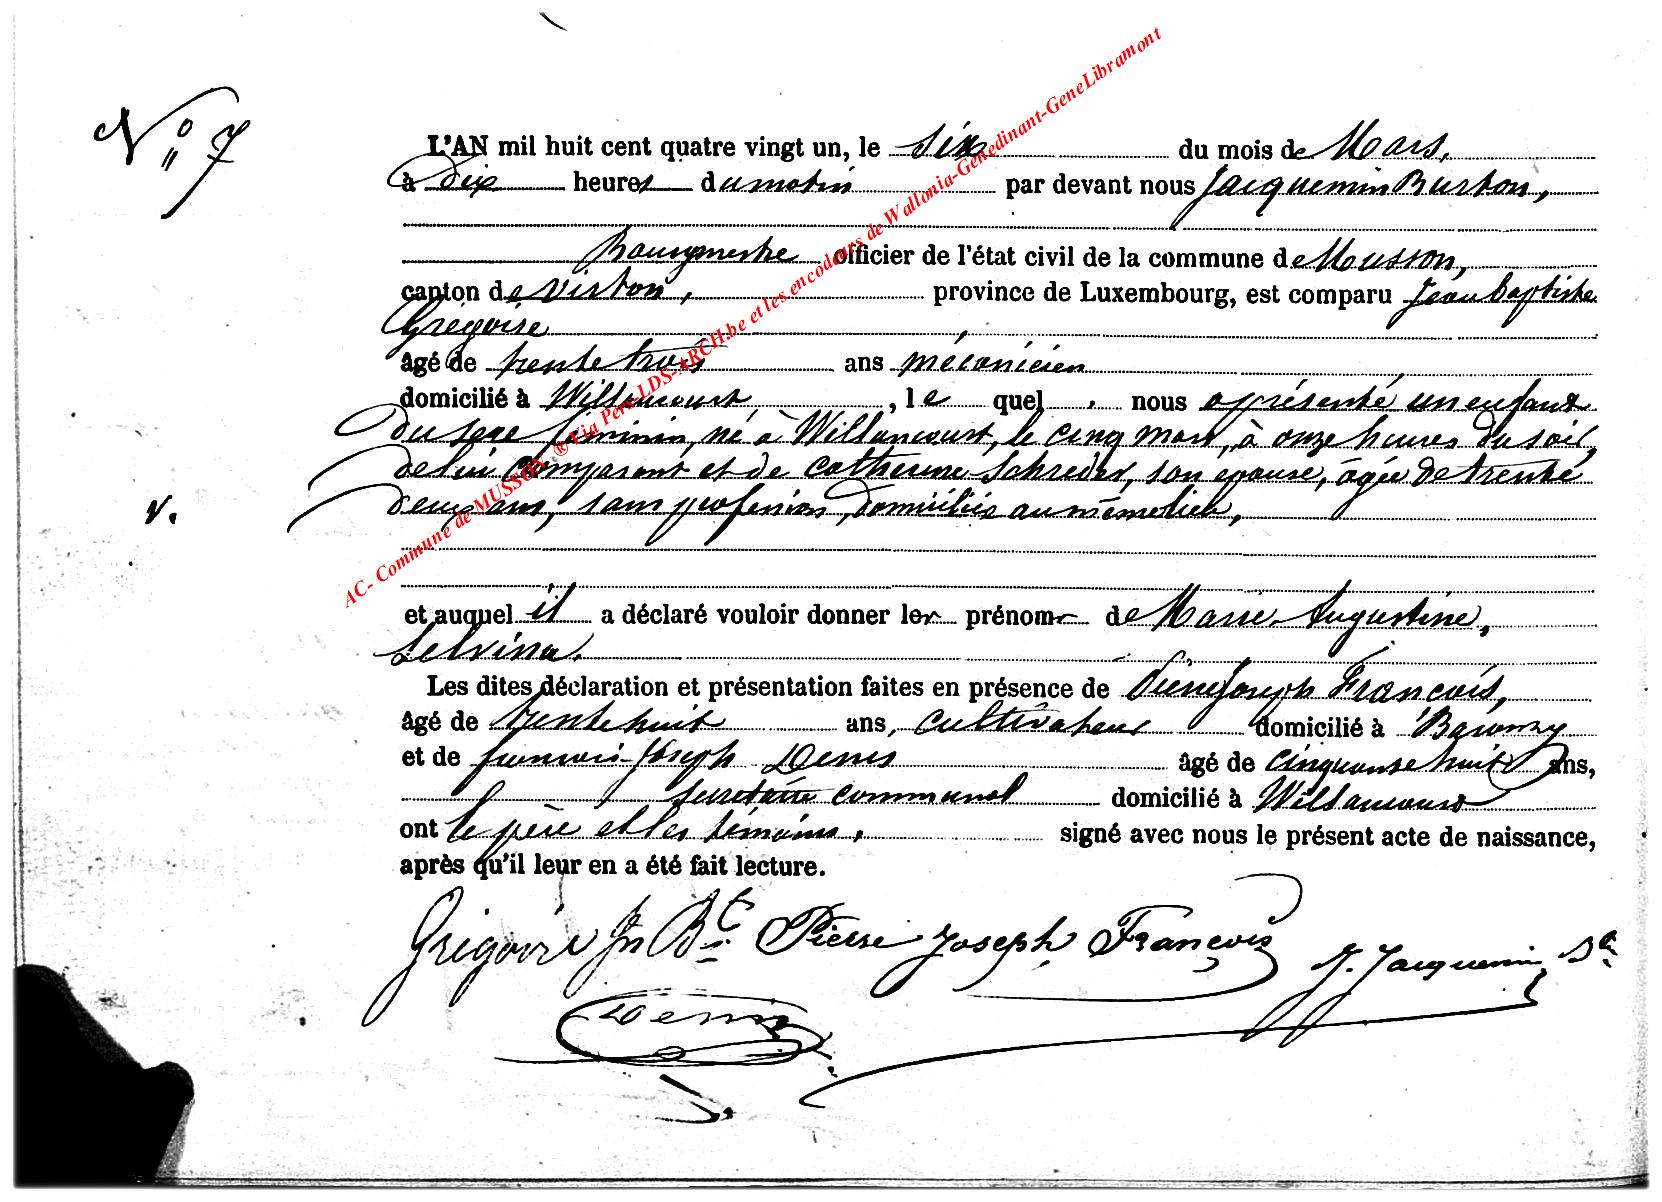 N° 7
L'AN mil huit cent quatre vingt un, le six du mois de Mars,
à dix heures du matin par devant nous Jacquemin Burton,
Bourgmestre officier de l'état civil de la commune de Musson,
canton de Virton, province de Luxembourg, est comparu Jean Baptiste
Grégoire,
âgé de trente trois ans mécanicien
domicilié à Willancourt, le quel nous a présenté un enfant
du sexe féminin, né à Willancourt, le cinq mars, à onze heures du soir,
de lui comparant et de Catherine Schreder, son épouse, âgée de trente
deux ans, sans profession, domiciliée au même lieu,
v.
et auquel il a déclaré vouloir donner les prénoms de Marie Augustine,
Selvina.
Les dites déclaration et présentation faites en présence de Pierre Joseph François,
âgé de trente huit ans, cultivateur domicilié à Baranzy
et de françois-Joseph Denis âgé de cinquante huit ans,
secrétaire communal domicilié à Willancourt
ont le père et les témoins, signé avec nous le présent acte de naissance,
après qu'il leur en a été fait lecture.
Grégoire Jn Bt. Pierre Joseph François J. Jacquemin Bn
Denis
AC- Commune de MUSSON ® Via Pers-LDS-ARCH.be et les encodeurs de Wallonia-Genedinant-GeneLibramont